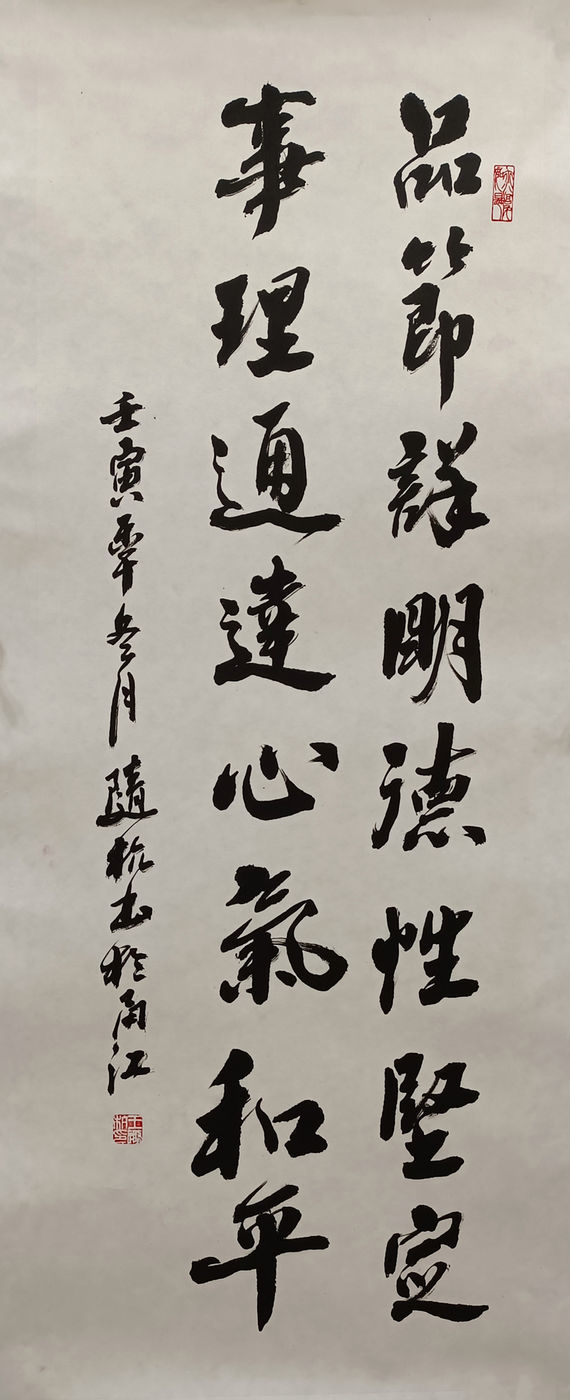 品節詳明德性堅定
事理通達心氣和平
壬寅年冬月隨杭書於甬江